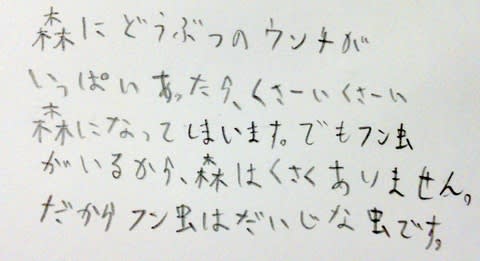 森にどうぶつのウンチが
いっぱいあったら、くさーいくさーい
森になってしまいます。でもフン虫
がいるから、森はくさくありません。
だからフン虫はだいじな虫です。